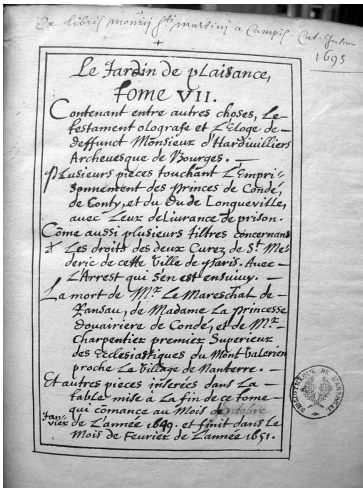 Ex libris monrij sti martini a Campis. Cat. Inscr.
1695
Le Jardin de plaisance,
Tome VII.
Contenant entre autres choses, Le
testament olografe et L'Eloge de
deffunct Monsieur d'Hardiuilliers
Archeuesque de Bourges.
Plusieurs pieces touchant L'Empri-
sonnement des Princes de Condé,
de Conty, et du Duc de Longueville,
auec Leur deLiurance de prison.
Côme aussi plusieurs tiltres concernans
Les droits des deux Curez de St. Me-
deric de cette Ville de Paris. Auec
L'Arrest qui s'en est ensuiuy.
La mort de Mr. Le Mareschal de
Ransau, de Madame La Princesse
Douairiere de Condé, et de Mr.
Charpentier premier Superieur
des Ecclesiastiques du Mont Valerien
proche Le Village de Nanterre.
Et autres pieces inserées dans La
table mise à La fin de ce tome
qui cômance au Mois de
Jan-
vier de L'année 1649. et finit dans le
Mois de Feurier de L'année 1651.